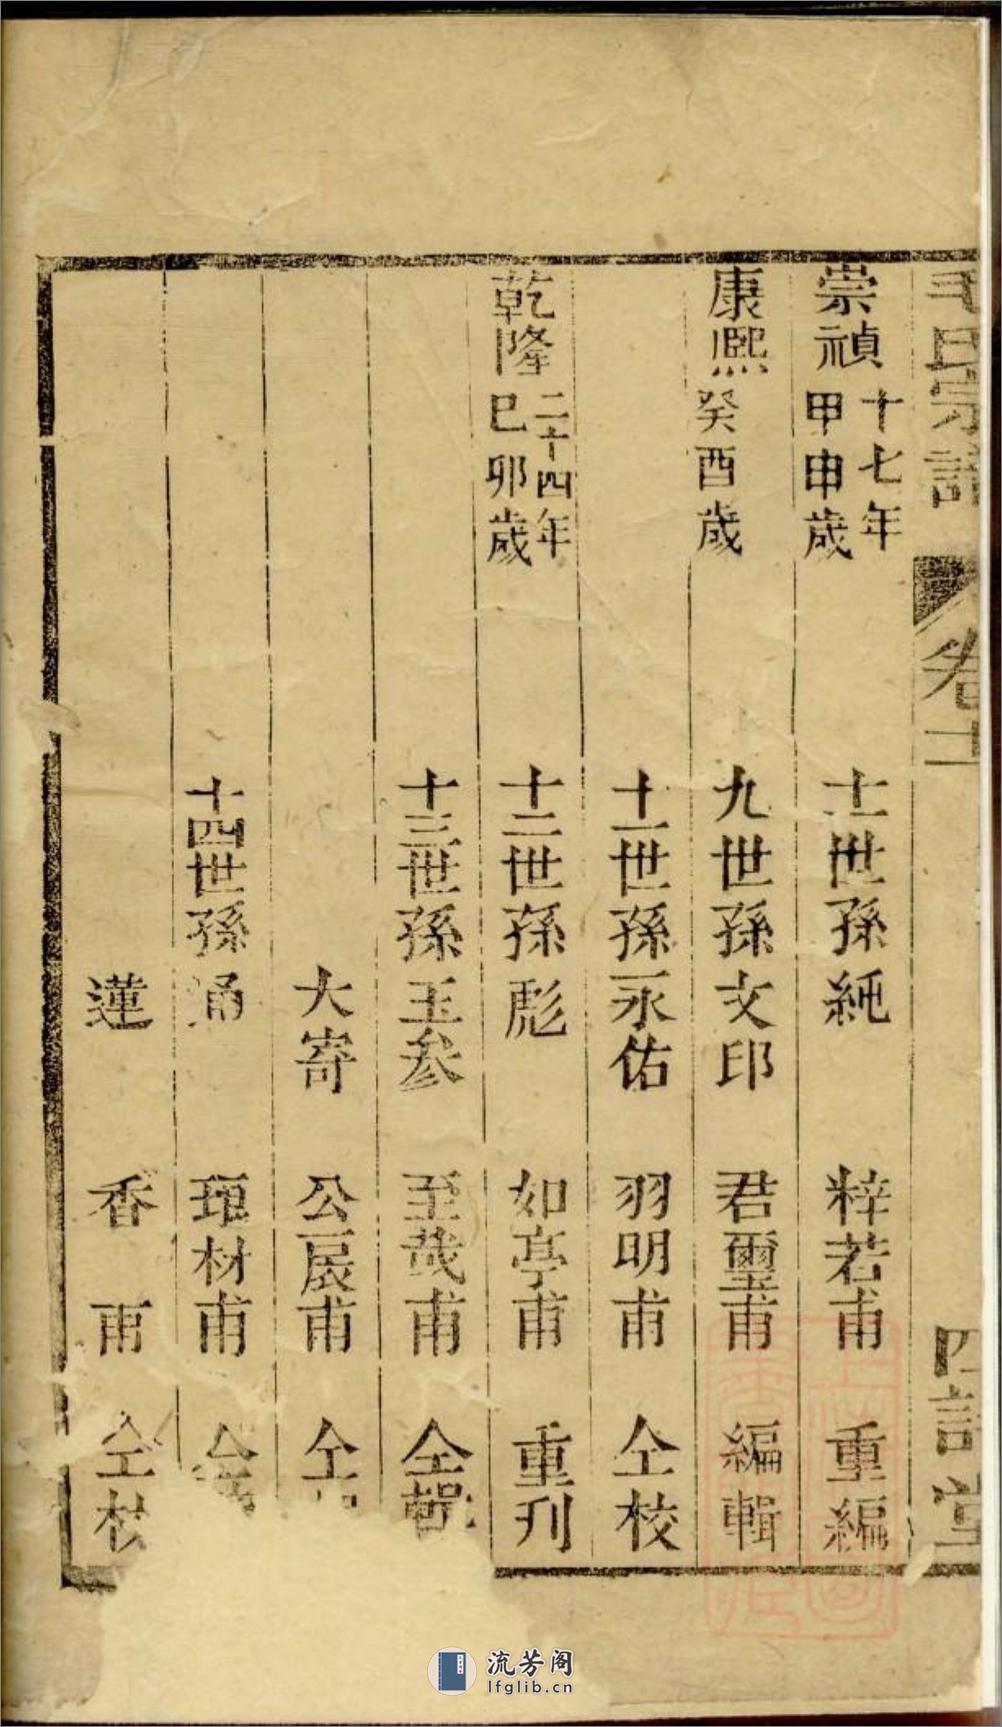 毛氏宗譜 卷十一 四詩堂
崇禎十七年甲申歲 十一世孫純 粹若甫 重編
康熙癸酉歲 九世孫文印 君璽甫 編輯
十一世孫永佑 羽明甫 仝校
乾隆二十四年己卯歲 十二世孫彪 如亭甫 重刋
十三世孫玉參 至哉甫 仝輯
大寄 公展甫 仝
十四世孫 琅材甫 仝
蓮 香甫 仝校
流芳阁
lfglib.cn